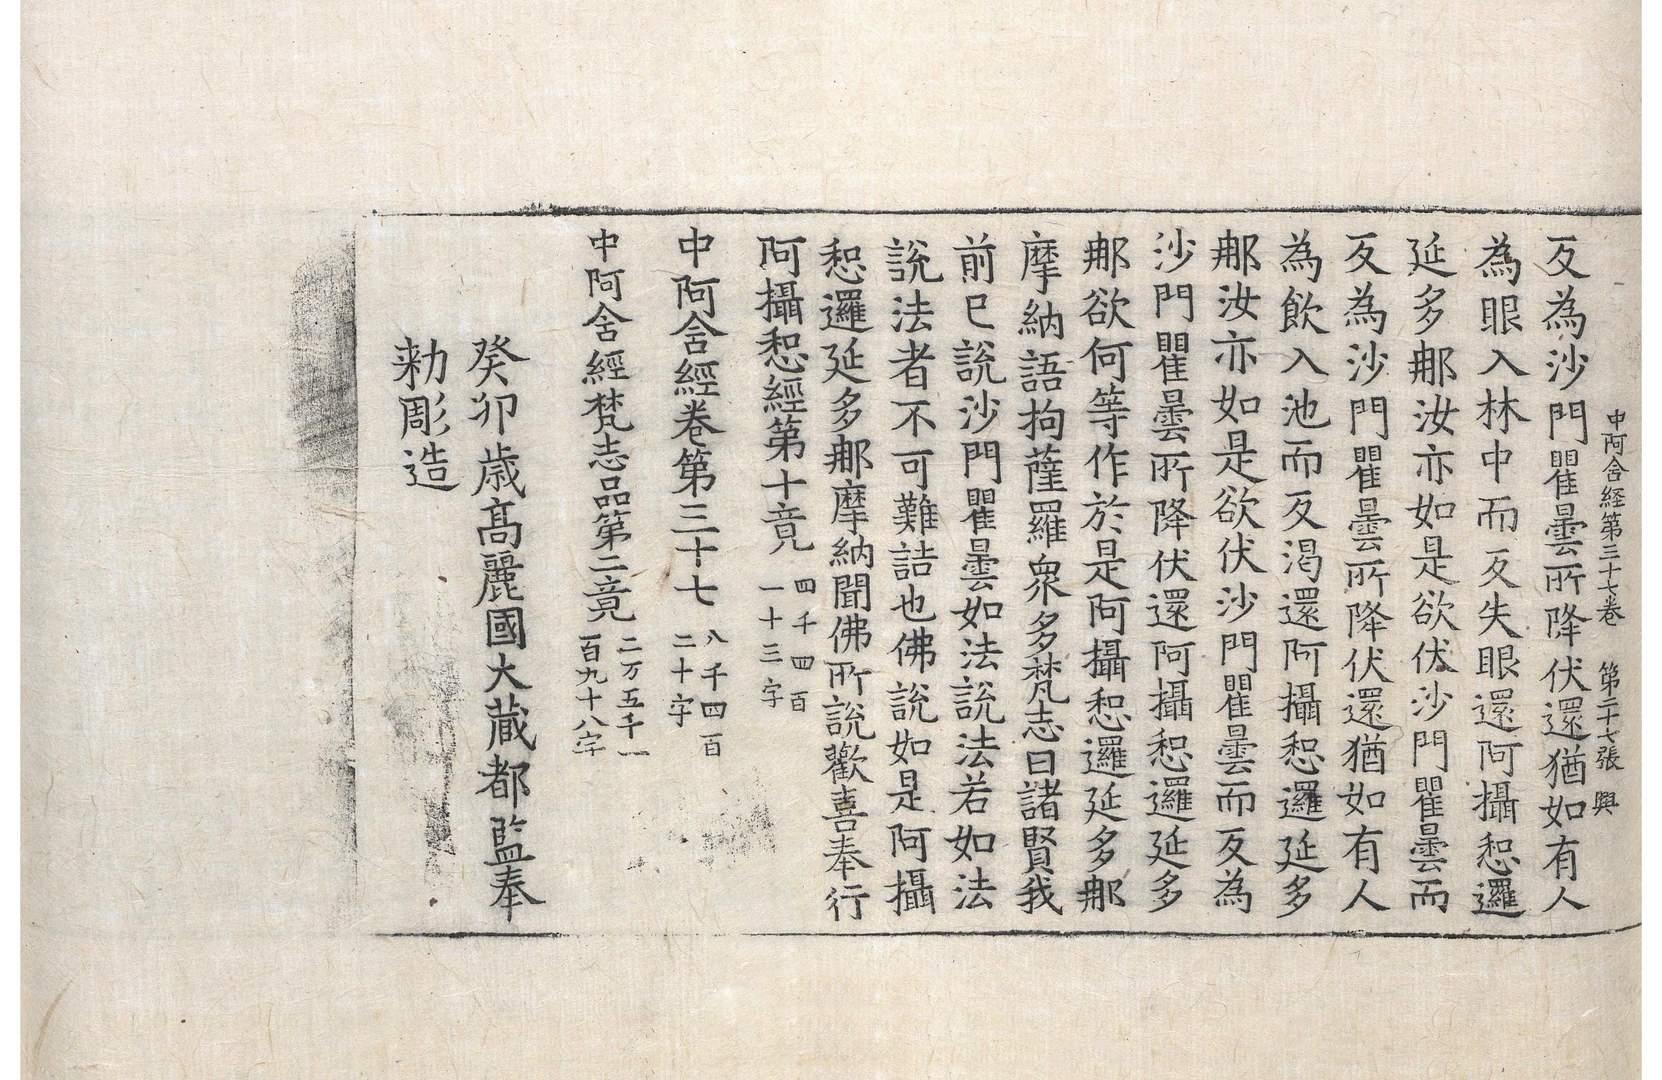 中阿含経第三十七卷　第二十七張　興
反為沙門瞿曇所降伏還猶如有人
為眼入林中而反失眼還阿攝惒邏
延多那汝亦如是欲伏沙門瞿曇而
反為沙門瞿曇所降伏還猶如有人
為飲入池而反渇還阿攝惒邏延多
那汝亦如是欲伏沙門瞿曇而反為
沙門瞿曇所降伏還阿攝惒邏延多
那欲何等作於是阿攝惒邏延多那
摩納語拘薩羅衆多梵志曰諸賢我
前已說沙門瞿曇如法說法若如法
說法者不可難詰也佛說如是阿攝
惒邏延多那摩納聞佛所說歡喜奉行
阿攝惒經第十竟 四千四百一十三字
中阿含經卷第三十七 八千四百二十字
中阿含經梵志品第二竟 二万五千一百九十八字
癸卯歲高麗國大藏都監奉
勑彫造